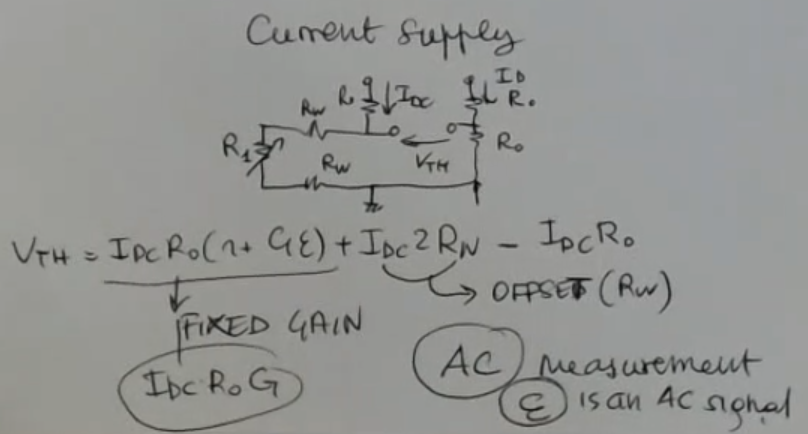 Current supply
R. I_DC I_D R.
R_W R_1 R_W V_TH R_0
V_TH = I_DC R_0 (1 + Gε) + I_DC 2 R_W - I_DC R_0
OFFSET (R_W)
FIXED GAIN
I_DC R_0 G
AC measurement
ε is an AC signal